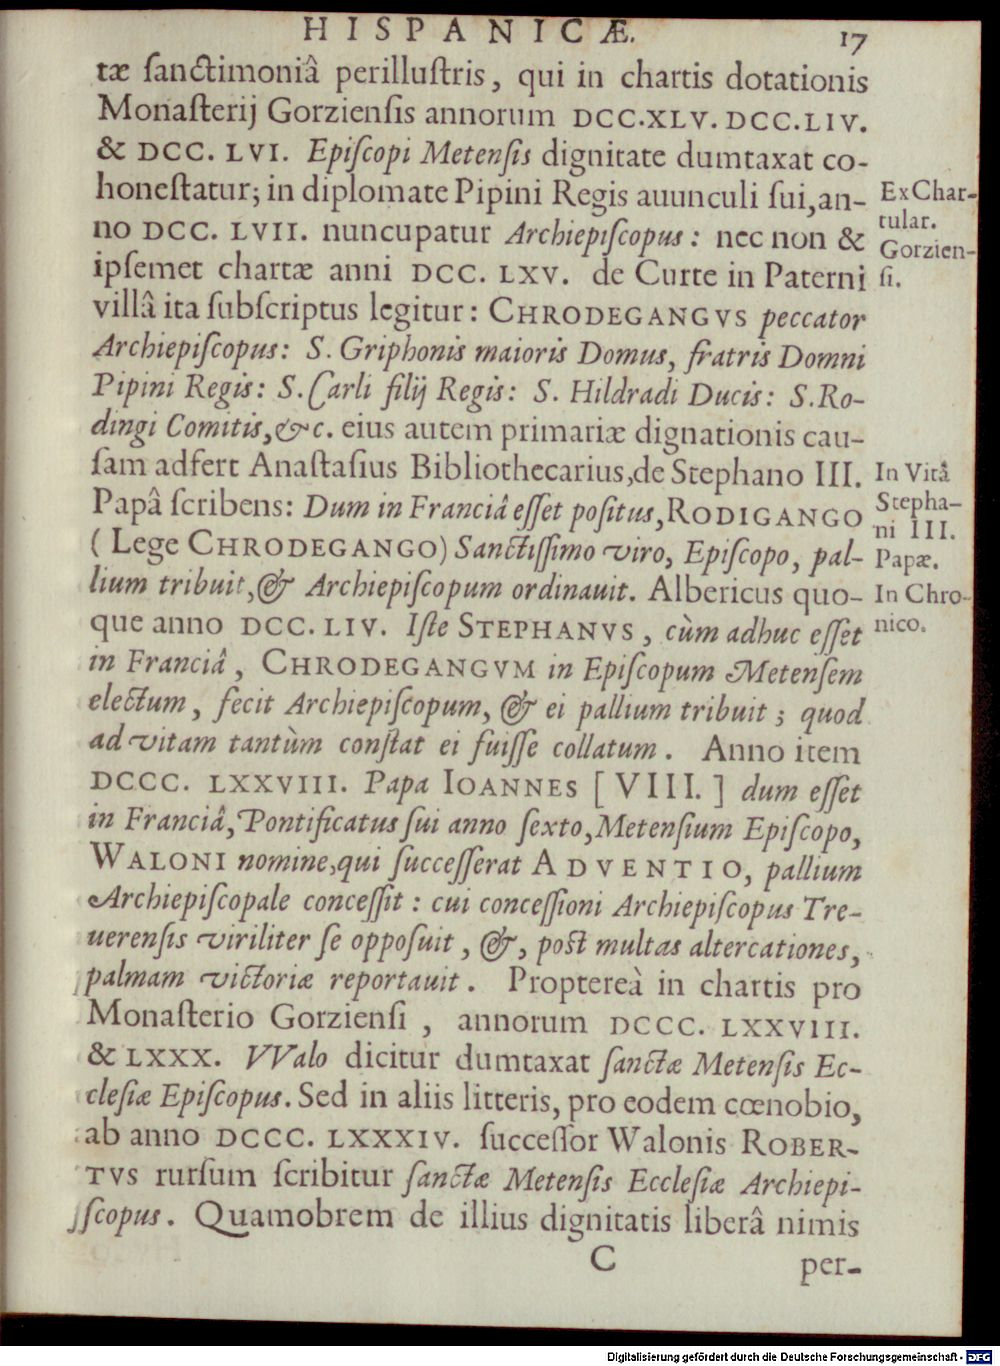 HISPANICÆ. 17
tæ ſanctimoniâ perilluſtris, qui in chartis dotationis
Monaſterij Gorzienſis annorum DCC.XLV. DCC.LIV.
& DCC. LVI. Epiſcopi Metenſis dignitate dumtaxat co-
honeſtatur; in diplomate Pipini Regis auunculi ſui, an-
no DCC. LVII. nuncupatur Archiepiſcopus: nec non &
ipſemet chartæ anni DCC. LXV. de Curte in Paterni
villâ ita ſubſcriptus legitur: CHRODEGANGVS peccator
Archiepiſcopus: S. Griphonis maioris Domus, fratris Domni
Pipini Regis: S. Carli filij Regis: S. Hildradi Ducis: S. Ro-
dingi Comitis, &c. eius autem primariæ dignationis cau-
ſam adfert Anaſtaſius Bibliothecarius, de Stephano III.
Papâ ſcribens: Dum in Franciâ eſſet poſitus, RODIGANGO
(Lege CHRODEGANGO) Sanctiſſimo viro, Epiſcopo, pal-
lium tribuit, & Archiepiſcopum ordinauit. Albericus quo-
que anno DCC. LIV. Iſte STEPHANVS, cùm adhuc eſſet
in Franciâ, CHRODEGANGVM in Epiſcopum Metenſem
electum, fecit Archiepiſcopum, & ei pallium tribuit; quod
ad vitam tantùm conſtat ei fuiſſe collatum. Anno item
DCCC. LXXVIII. Papa IOANNES [VIII.] dum eſſet
in Franciâ, Pontificatus ſui anno ſexto, Metenſium Epiſcopo,
WALONI nomine, qui ſucceſſerat ADVENTIO, pallium
Archiepiſcopale conceſſit: cui conceſſioni Archiepiſcopus Tre-
uerenſis viriliter ſe oppoſuit, &, poſt multas altercationes,
palmam victoriæ reportauit. Proptereà in chartis pro
Monaſterio Gorzienſi, annorum DCCC. LXXVIII.
& LXXX. VValo dicitur dumtaxat ſanctæ Metenſis Ec-
cleſiæ Epiſcopus. Sed in aliis litteris, pro eodem cœnobio,
ab anno DCCC. LXXXIV. ſucceſſor Walonis ROBER-
TVS rurſum ſcribitur ſanctæ Metenſis Eccleſiæ Archiepi-
ſcopus. Quamobrem de illius dignitatis liberâ nimis
C per-
Ex Char-
tular.
Gorzien-
ſi.
In Vitâ
Stepha-
ni III.
Papæ.
In Chro-
nico.
Digitalisierung gefördert durch die Deutsche Forschungsgemeinschaft - DFG